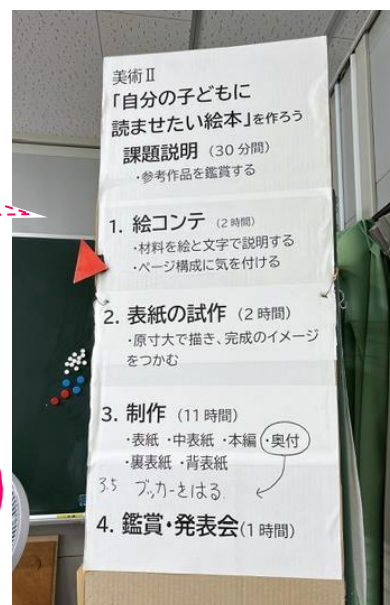 美術Ⅱ
「自分の子どもに
読ませたい絵本」を作ろう
課題説明 (30分間)
・参考作品を鑑賞する
1. 絵コンテ (2時間)
・材料を絵と文字で説明する
・ページ構成に気を付ける
2. 表紙の試作 (2時間)
・原寸大で描き、完成のイメージ
をつかむ
3. 制作 (11時間)
・表紙・中表紙・本編・奥付
・裏表紙・背表紙
3.5 ブッカーをはる
4. 鑑賞・発表会(1時間)